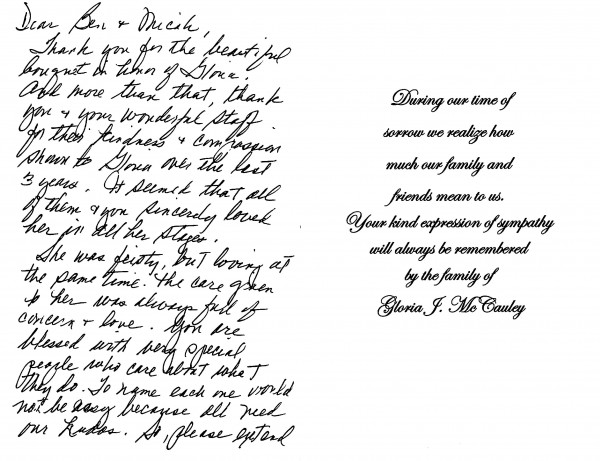 Dear Ben & Micah,
Thank you for the beautiful
bouquet in honor of Gloria.
And more than that, thank
you & your wonderful staff
for their kindness & compassion
shown to Gloria over the last
3 years. It seemed that all
of them & you sincerely loved
her in all her stages.
She was feisty, but loving at
the same time. The care given
to her was always full of
concern & love. You are
blessed with very special
people who care about what
they do. To name each one would
not be easy because all need
our kudos. So, please extend
During our time of
sorrow we realize how
much our family and
friends mean to us.
Your kind expression of sympathy
will always be remembered
by the family of
Gloria J. McCauley